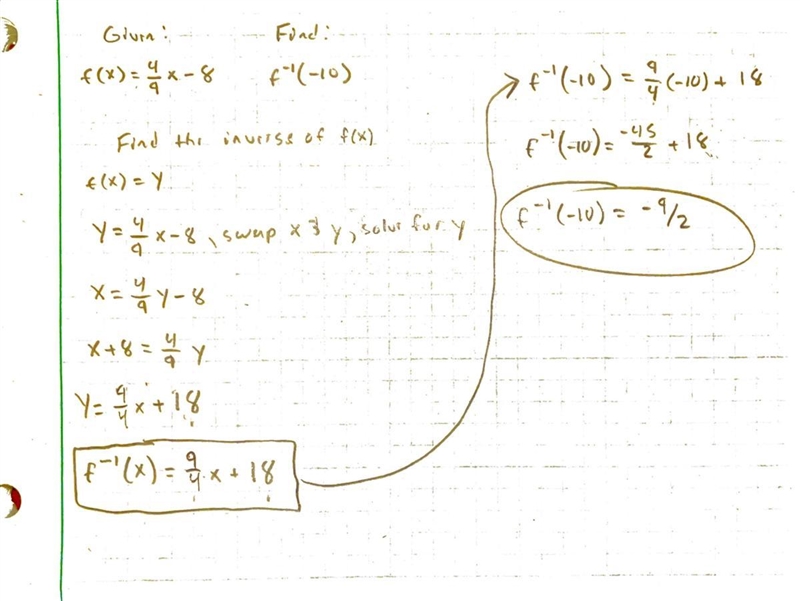 Given: Find:
f(x) = 4/9 x - 8 f⁻¹(-10)
Find the inverse of f(x)
f(x) = y
y = 4/9 x - 8, swap x & y, solve for y
x = 4/9 y - 8
x + 8 = 4/9 y
y = 9/4 x + 18
f⁻¹(x) = 9/4 x + 18
f⁻¹(-10) = 9/4 (-10) + 18
f⁻¹(-10) = -45/2 + 18
f⁻¹(-10) = -9/2